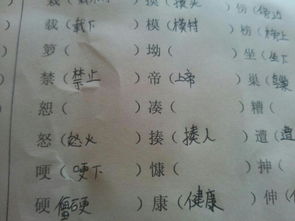 载（载下 ）模（模特 ）榜（
）坳（ ）坐（坐下
禁（禁止 ）帝（上帝 ）巢（
恕（ ）凑（ ）糟（
怒（怒火 ）揍（揍人 ）遭（
哽（哽下 ）慷（ ）抻（
硬（僵硬 ）康（健康 ）伸（